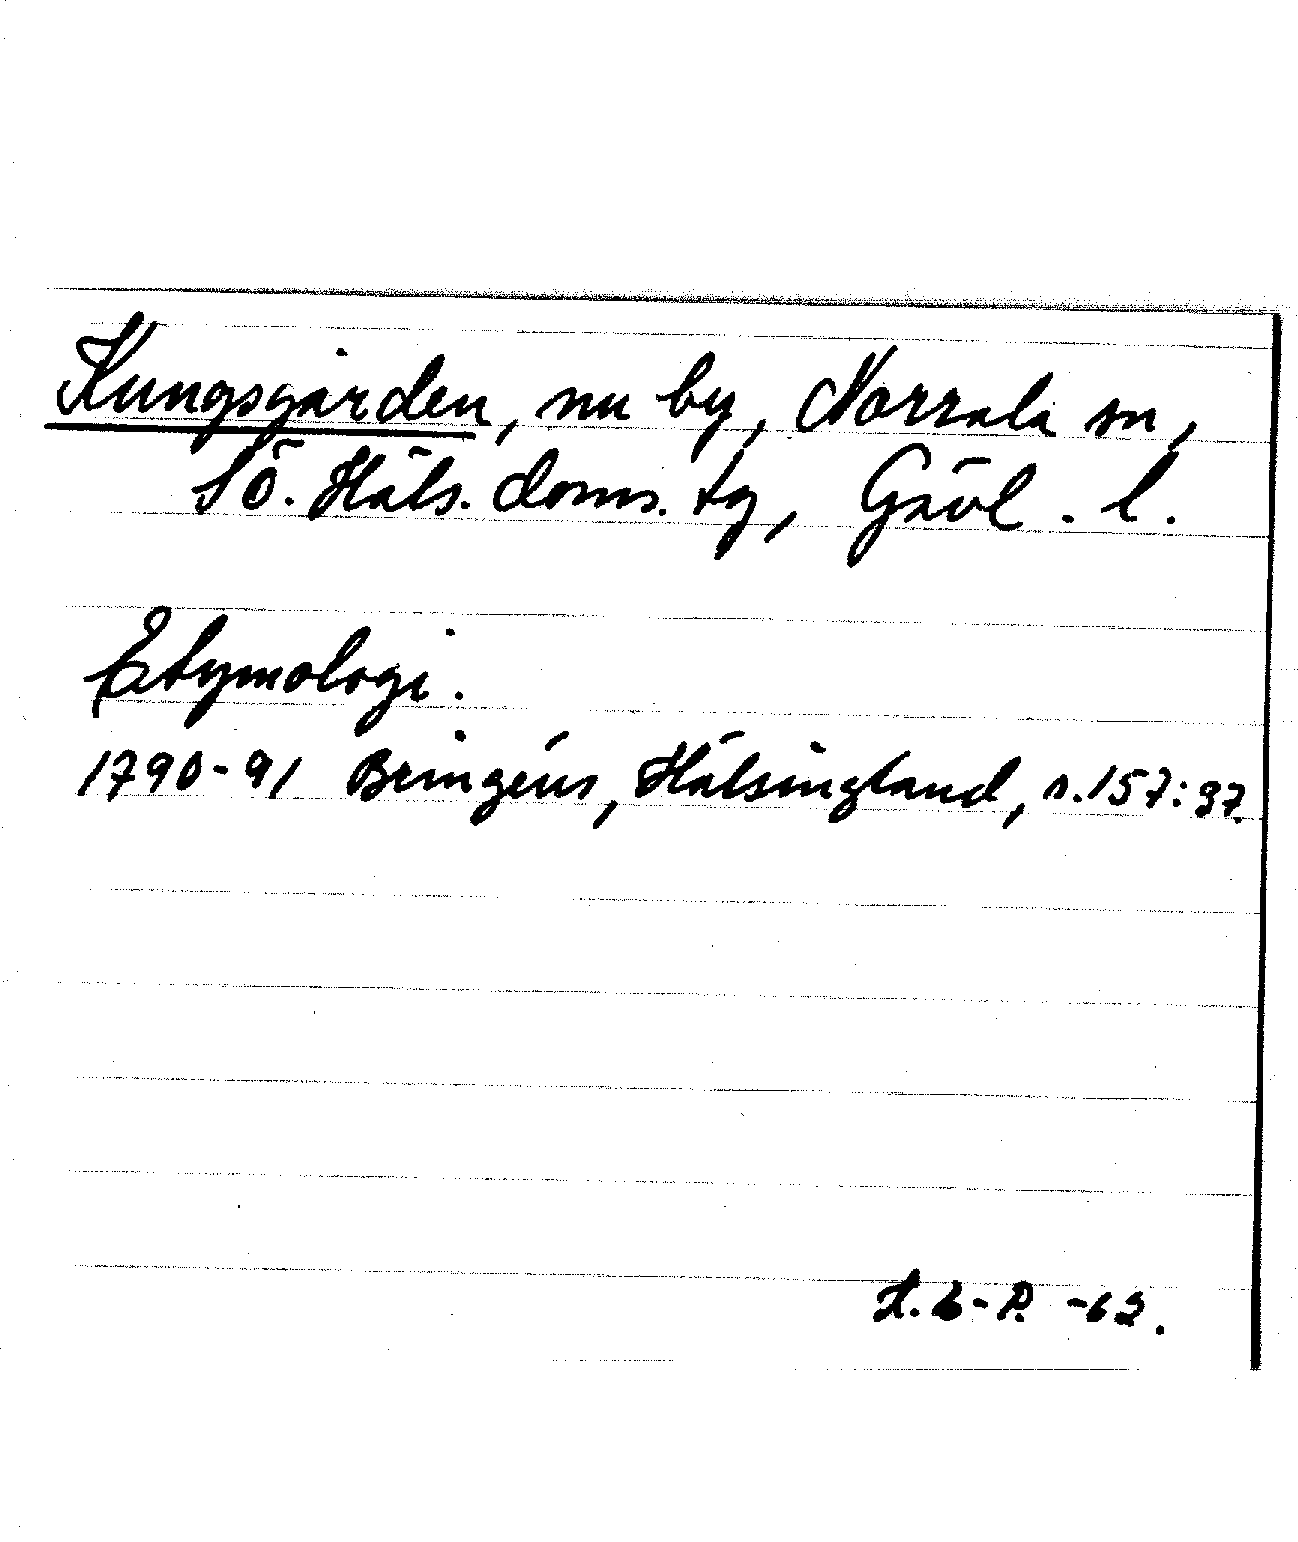 Kungsgården, nu by, Norrala sn,
Sö. Häls. doms. tg, Gävl. l.
Etymologi.
1790-91 Bringéus, Hälsingland, s. 157: 37.
-62.